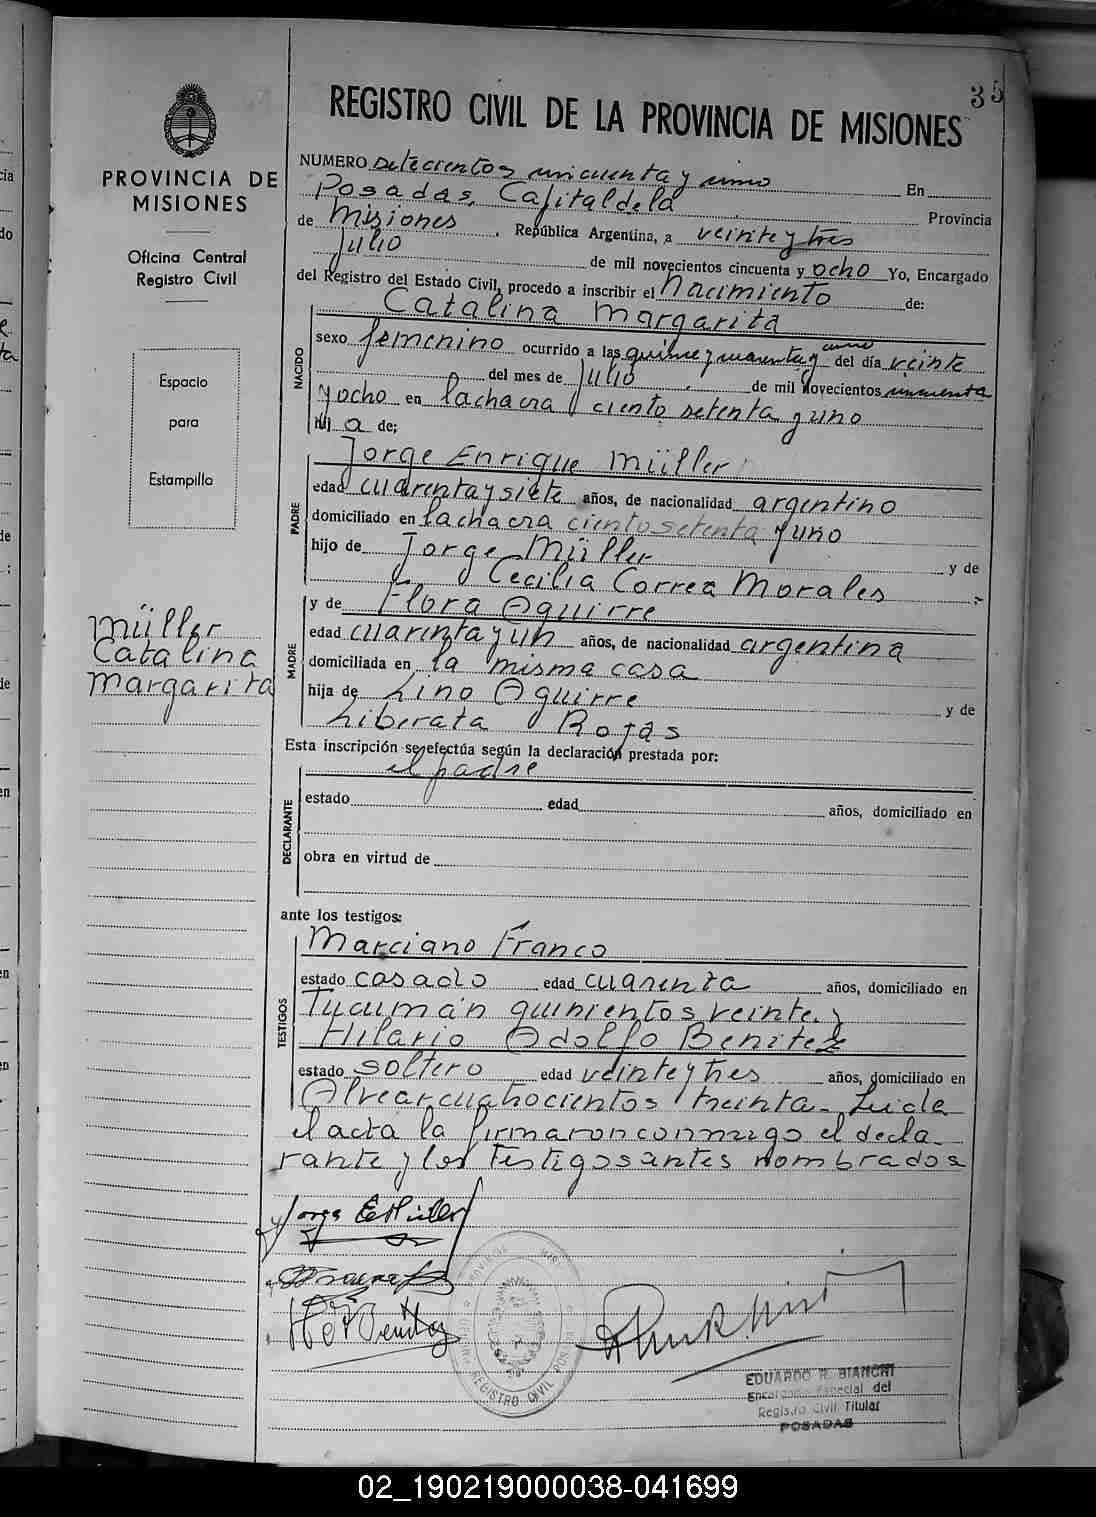 35
REGISTRO CIVIL DE LA PROVINCIA DE MISIONES
PROVINCIA DE
MISIONES
Oficina Central
Registro Civil
Espacio
para
Estampilla
Müller
Catalina
Margarita
NUMERO setecientos cincuenta y uno En
Posadas, Capital de la Provincia
de Misiones, República Argentina, a veinte y tres
Julio de mil novecientos cincuenta y ocho Yo, Encargado
del Registro del Estado Civil, procedo a inscribir el nacimiento de:
Catalina Margarita
NACIDO
sexo femenino ocurrido a las quince y cuarenta y cinco del día veinte
del mes de Julio de mil novecientos cincuenta
y ocho en la chacra ciento setenta y uno
hija de;
Jorge Enrique Müller
PADRE
edad cuarenta y siete años, de nacionalidad argentino
domiciliado en la chacra ciento setenta y uno
hijo de Jorge Müller y de
Cecilia Correa Morales
y de Flora Aguirre
MADRE
edad cuarenta y un años, de nacionalidad argentina
domiciliada en la misma casa
hija de Lino Aguirre y de
Liberata Rojas
Esta inscripción se efectúa según la declaración prestada por:
el padre
DECLARANTE
estado edad años, domiciliado en
obra en virtud de
ante los testigos:
Marciano Franco
TESTIGOS
estado casado edad cuarenta años, domiciliado en
Tucumán quinientos veinte y
Hilario Adolfo Benitez
estado soltero edad veinte y tres años, domiciliado en
Alvear cuatrocientos treinta. Leida
el acta la firmaron conmigo el decla-
rante y los testigos antes nombrados
Jorge E Müller
Benitez
REGISTRO CIVIL
EDUARDO R. BIANCHI
Encargado Especial del
Registro Civil Titular
POSADAS
02_190219000038-041699